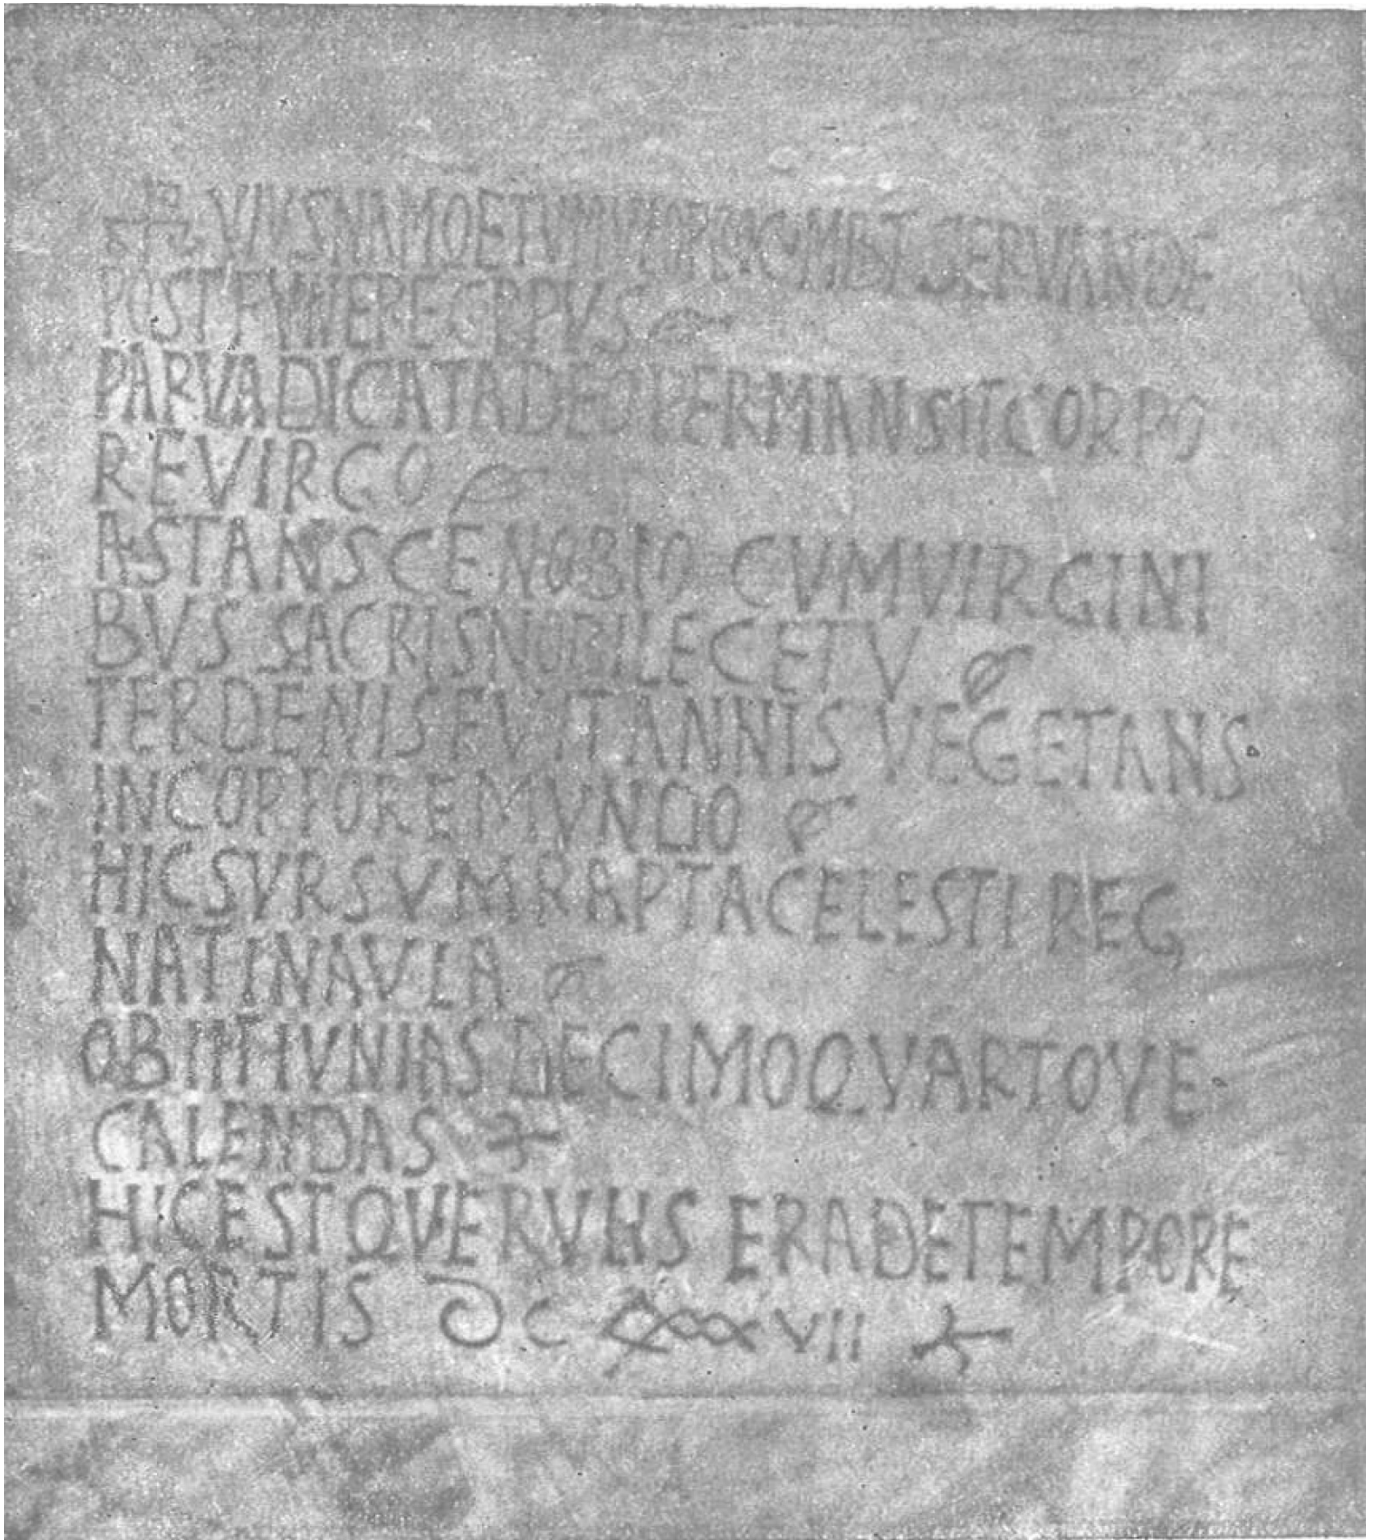 VIUS NAMQE TUMULO PROCUMBIT SERVANDE
POST FVNERE CORPVS
PARVA DICATA DEO PERMANSIT CORPO
RE VIRGO
ASTANS CENOBIO CVM VIRGINI
BVS SACRIS NOBILE CETV
TER DENIS FVIT ANNIS VEGETANS
IN CORPORE MVNDO
HIC SVRSVM RAPTA CELESTI REG
NAT IN AVLA
OBIIT IVNIAS DECIMO QVARTO VE
CALENDAS
HIC EST QVERVLIS ERA DE TEMPORE
MORTIS DC LXXXVII